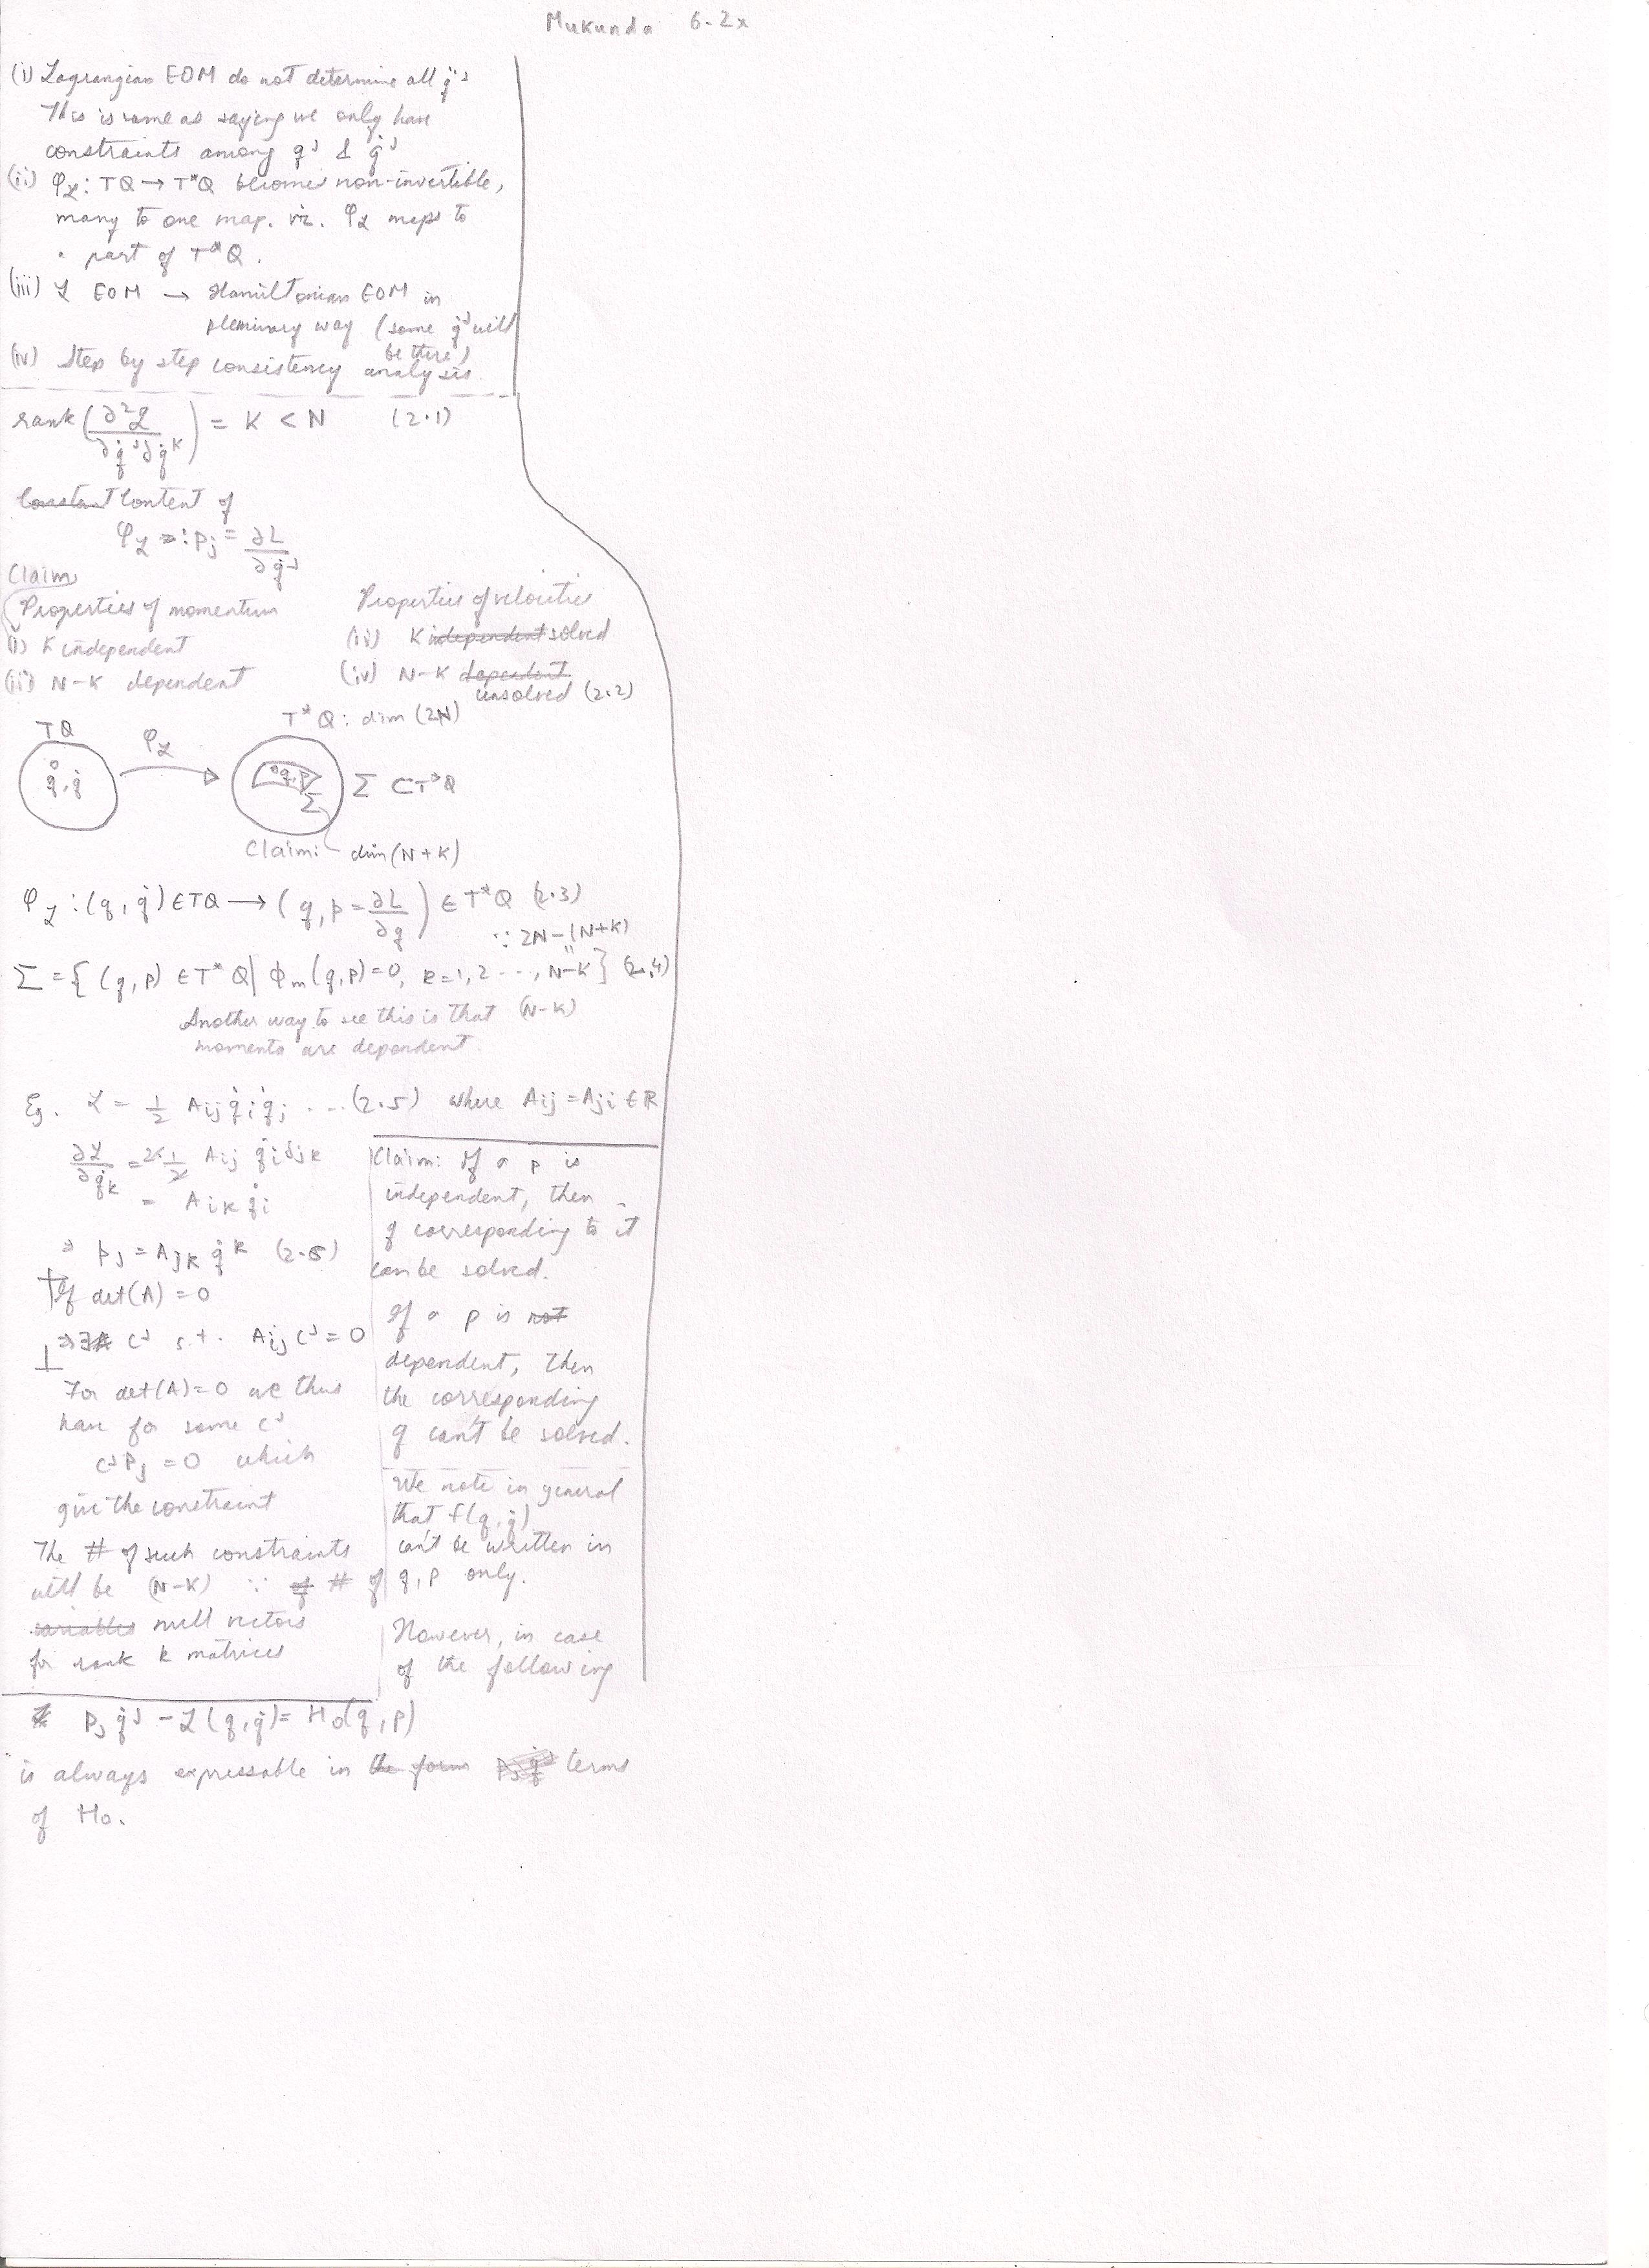 Mukunda 6-2x
(i) Lagrangian EOM do not determine all q̈ʲ
This is same as saying we only have
constraints among qʲ & q̇ʲ
(ii) φ_ℒ: TQ → T*Q becomes non-invertible,
many to one map. viz. φ_ℒ maps to
a part of T*Q.
(iii) ℒ EOM → Hamiltonian EOM in
pleminary way (some q̇ʲ will
be there)
(iv) Step by step consistency analysis.
rank(∂²ℒ/∂q̇ʲ∂q̇ᵏ) = K < N (2.1)
Content of
φ_ℒ : pⱼ = ∂L/∂q̇ʲ
Claim
Properties of momentum
(i) K independent
(ii) N-K dependent
Properties of velocities
(iii) K independent solved
(iv) N-K dependent
unsolved (2.2)
TQ
q,q̇
φ_ℒ
T*Q: dim (2N)
q,p
Σ
Σ ⊂ T*Q
Claim: dim(N+K)
φ_ℒ : (q, q̇) ∈ TQ → (q, p = ∂L/∂q) ∈ T*Q (2.3)
∵ 2N-(N+K)
"
Σ = { (q, p) ∈ T*Q | φₘ(q,p)=0, k=1,2 ..., N-K } (2.4)
Another way to see this is that (N-K)
momenta are dependent.
Eg. ℒ = ½ Aᵢⱼ q̇ᵢ q̇ⱼ .... (2.5) where Aᵢⱼ = Aⱼᵢ ∈ ℝ
∂ℒ/∂q̇ₖ = 2×½ Aᵢⱼ q̇ᵢ δⱼₖ
= Aᵢₖ q̇ᵢ
⇒ pⱼ = Aⱼₖ q̇ᵏ (2.6)
If det(A) = 0
⇒ ∃ cʲ s.t. Aᵢⱼ cʲ = 0
For det(A)=0 we thus
have for some cʲ
cʲ pⱼ = 0 which
give the constraint
The # of such constraints
will be (N-K) ∵ of # of
variables null vectors
for rank k matrices
Claim: If a p is
independent, then
q̇ corresponding to it
can be solved.
If a p is not
dependent, then
the corresponding
q̇ can't be solved.
We note in general
that f(q, q̇)
can't be written in
q, p only.
However, in case
of the following
pⱼ q̇ʲ - ℒ(q, q̇) = H₀(q, p)
is always expressable in the form terms
of H₀.